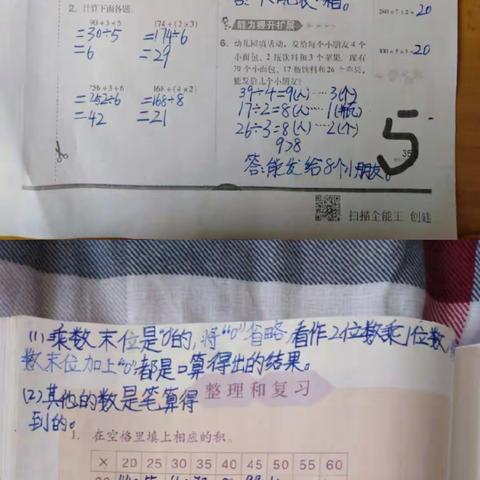 2. 计算下面各题。
90÷3÷5
174÷(2×3)
=30÷5
=174÷6
=6
=29
756÷3÷6
168÷(4×2)
=252÷6
=168÷8
=42
=21
能力提升扩展
6. 幼儿园搞活动,发给每个小朋友4个
小面包、2瓶饮料和3个苹果。现有
39个小面包、17瓶饮料和26个苹果,
能发给几个小朋友?
39÷4=9(人)……3(个)
17÷2=8(人)……1(瓶)
26÷3=8(人)……2(个)
9>8
答:能发给8个小朋友。
5
35
=20
=20
扫描全能王 创建
(1)乘数末位是"0"的,将"0"省略,看作2位数乘1位数,
数末位加上"0",都是口算得出的结果。
(2)其他的数是笔算得
到的。
整理和复习
1. 在空格里填上相应的积。
× 20 25 30 35 40 45 50 55 60